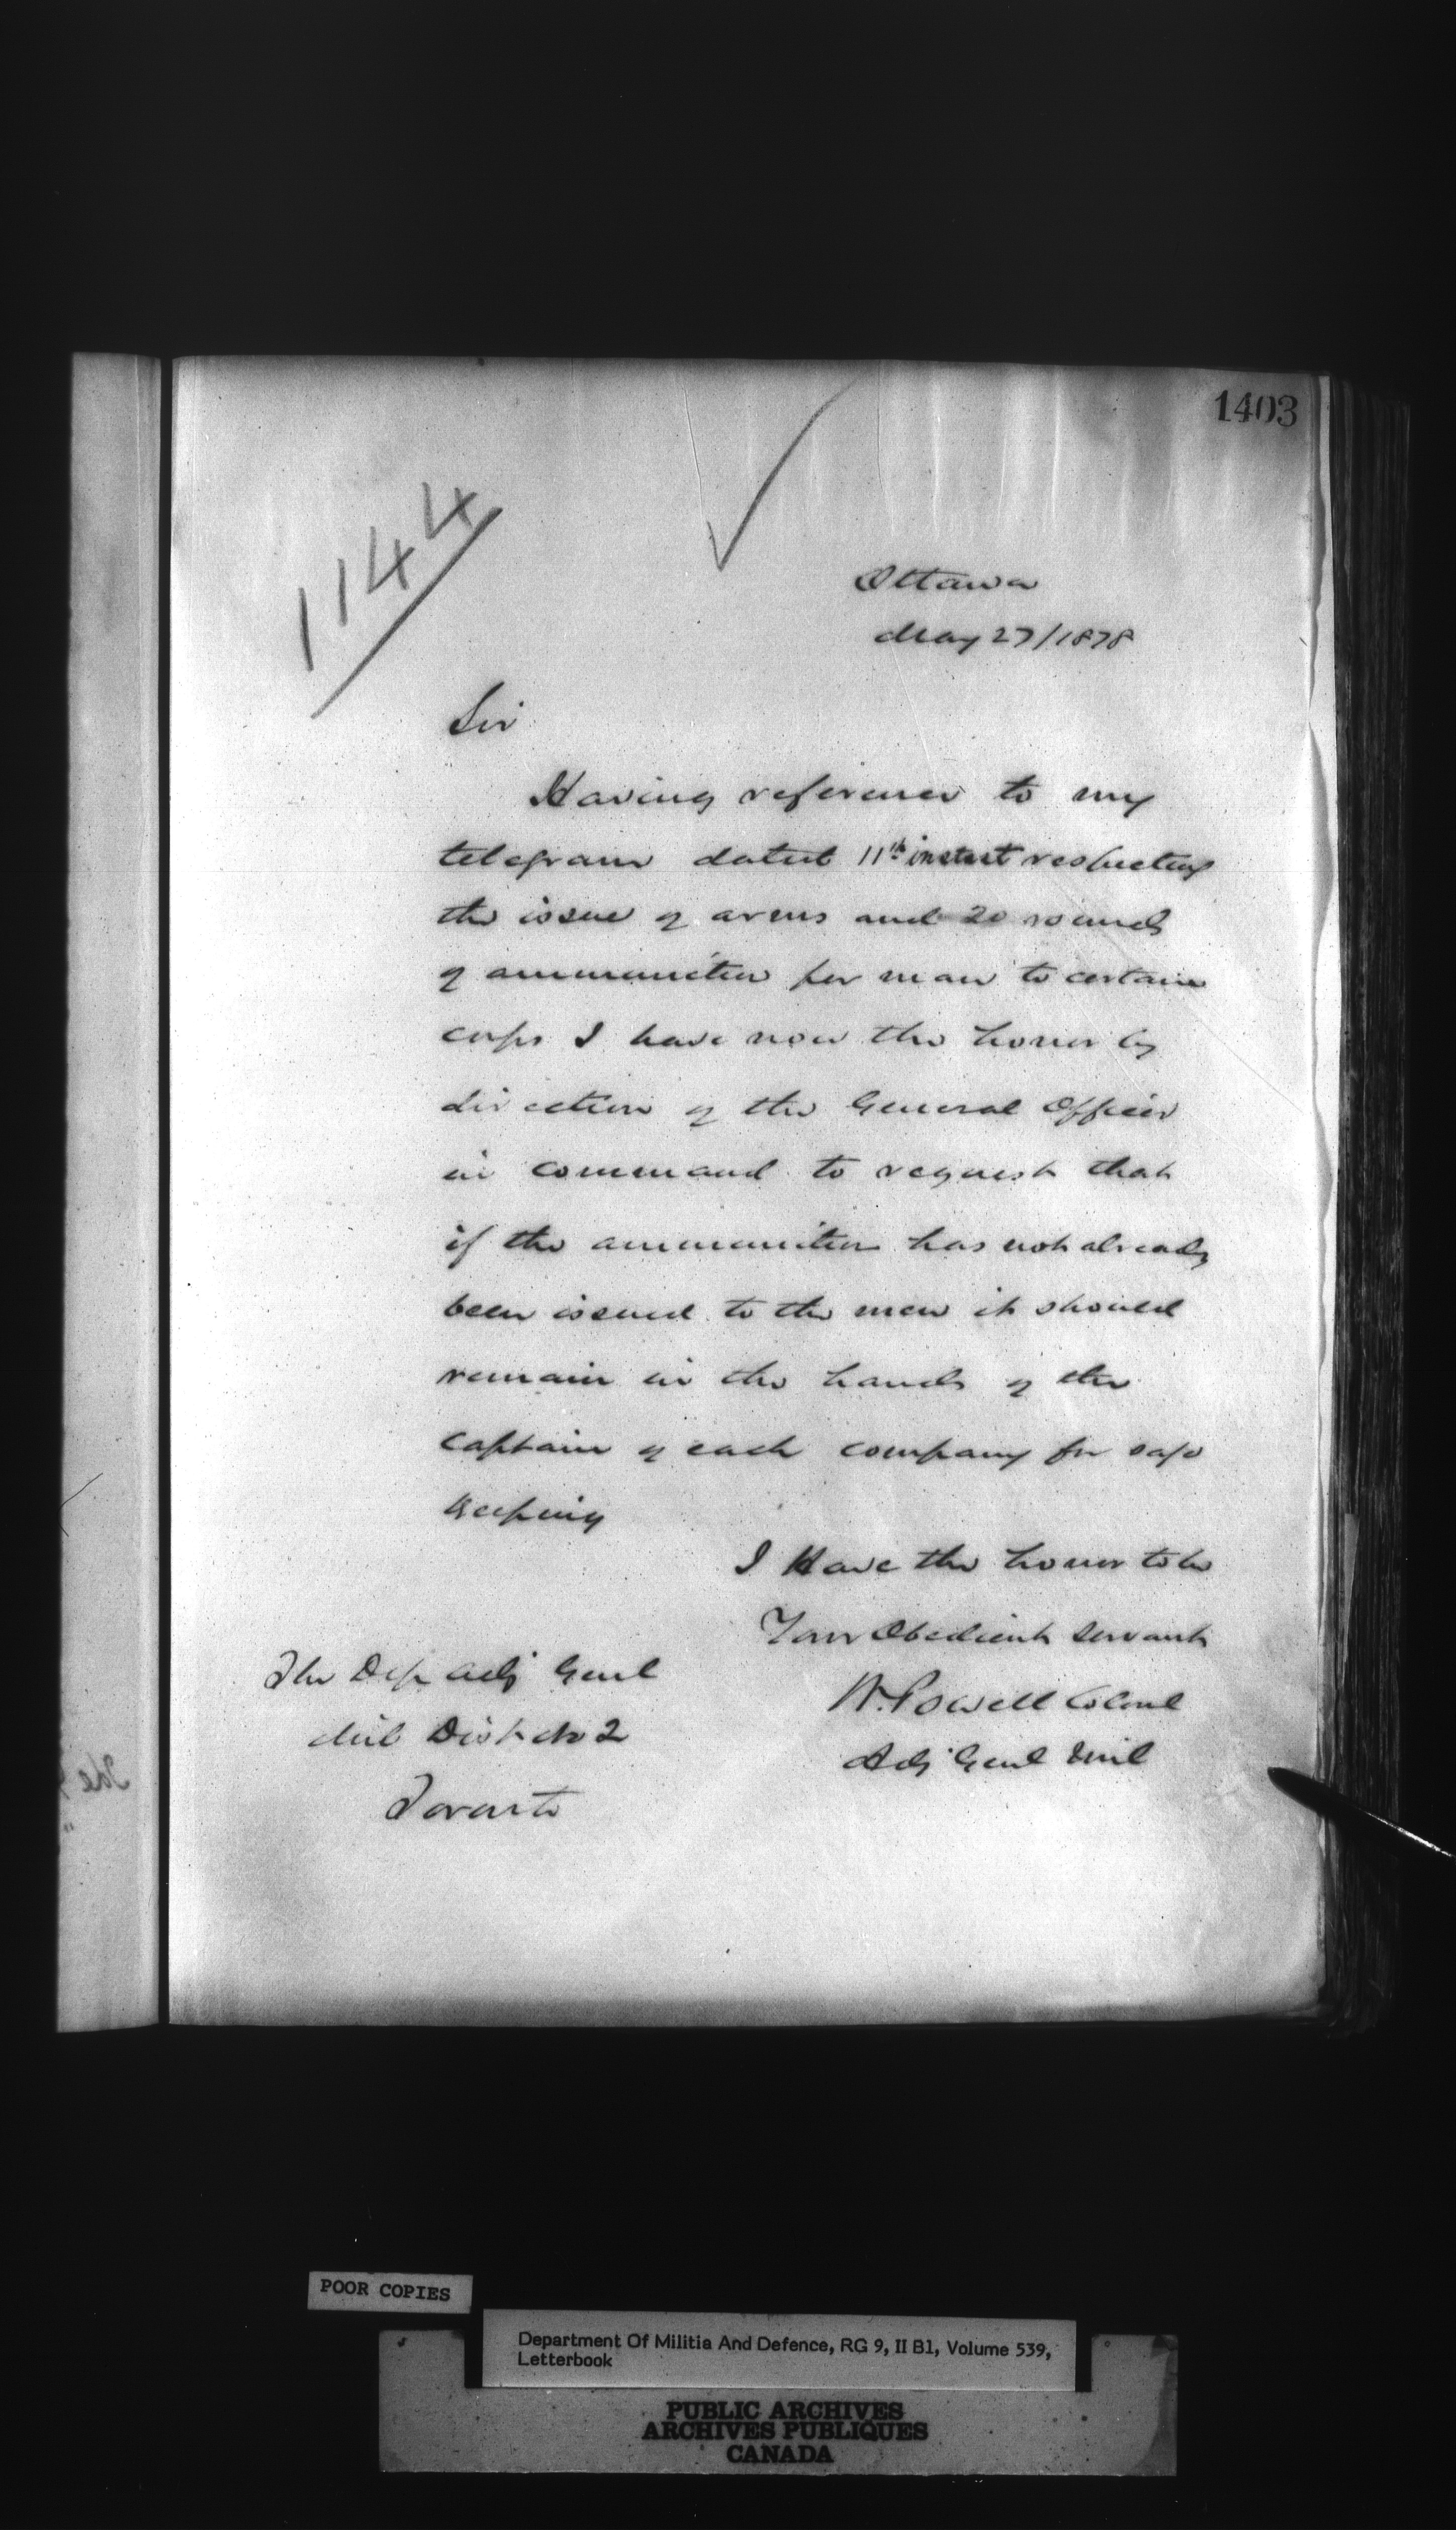 1403
1144
Ottawa
May 27/1878
Sir
Having reference to my
telegram dated 11th instant respecting
the issue of arms and 20 rounds
of ammunition per man to certain
corps I have now the honor by
direction of the General Officer
in command to request that
if the ammunition has not already
been issued to the men it should
remain in the hands of the
Captain of each company for safe
keeping
I Have the honor to be
Your Obedient Servant
W. Powell Colonel
Adj Genl Mil
The Dep Adj Genl
Mil Dist No 2
Toronto
POOR COPIES
Department Of Militia And Defence, RG 9, II B1, Volume 539,
Letterbook
PUBLIC ARCHIVES
ARCHIVES PUBLIQUES
CANADA